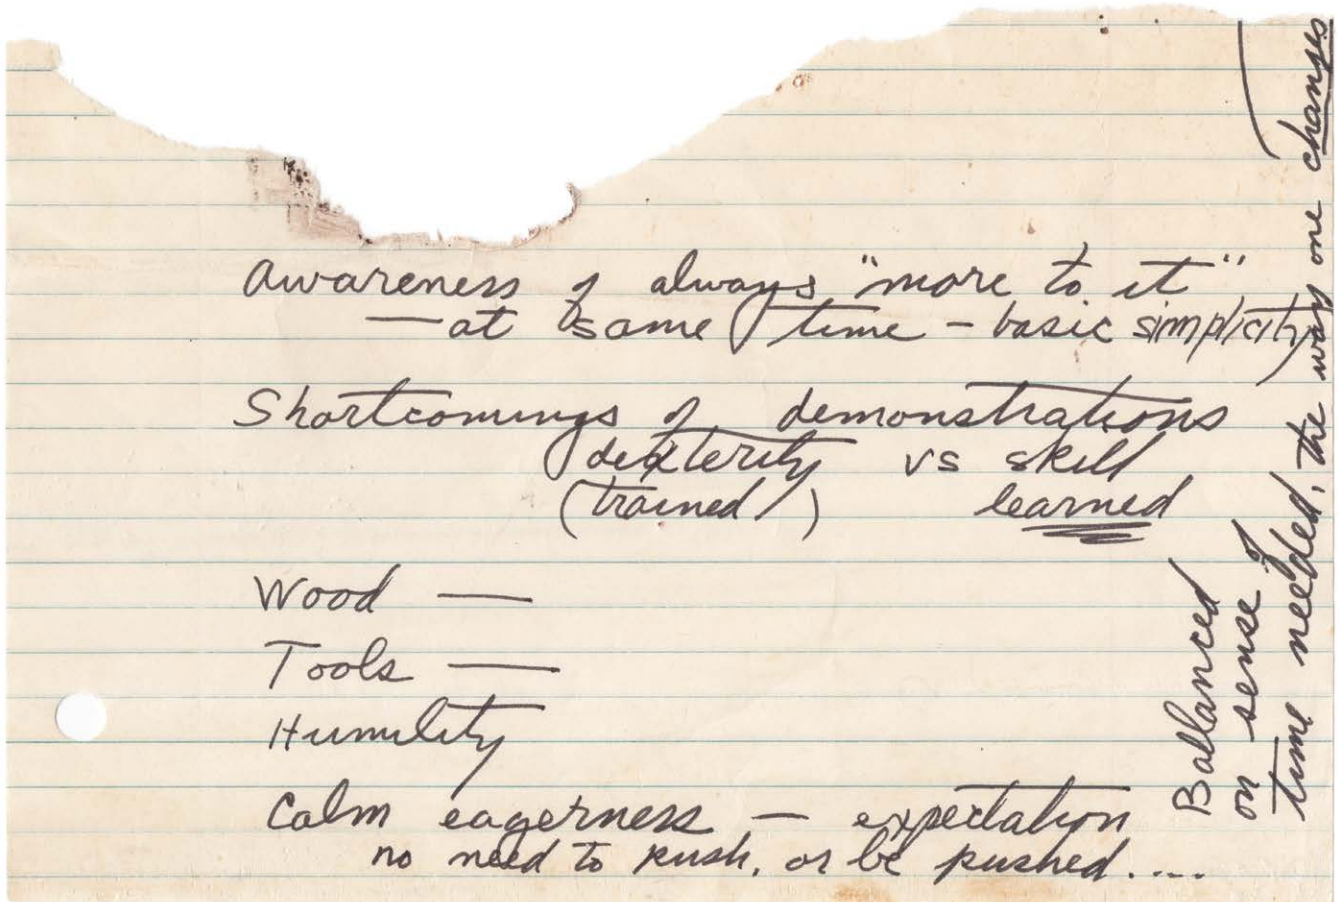 Awareness of always "more to it"
— at same time – basic simplicity
Shortcomings of demonstrations
dexterity vs skill
(trained) learned
Wood —
Tools —
Humility
Calm eagerness — expectation
no need to push, or be pushed....
Ballanced
on sense of
time needed, the way one changes